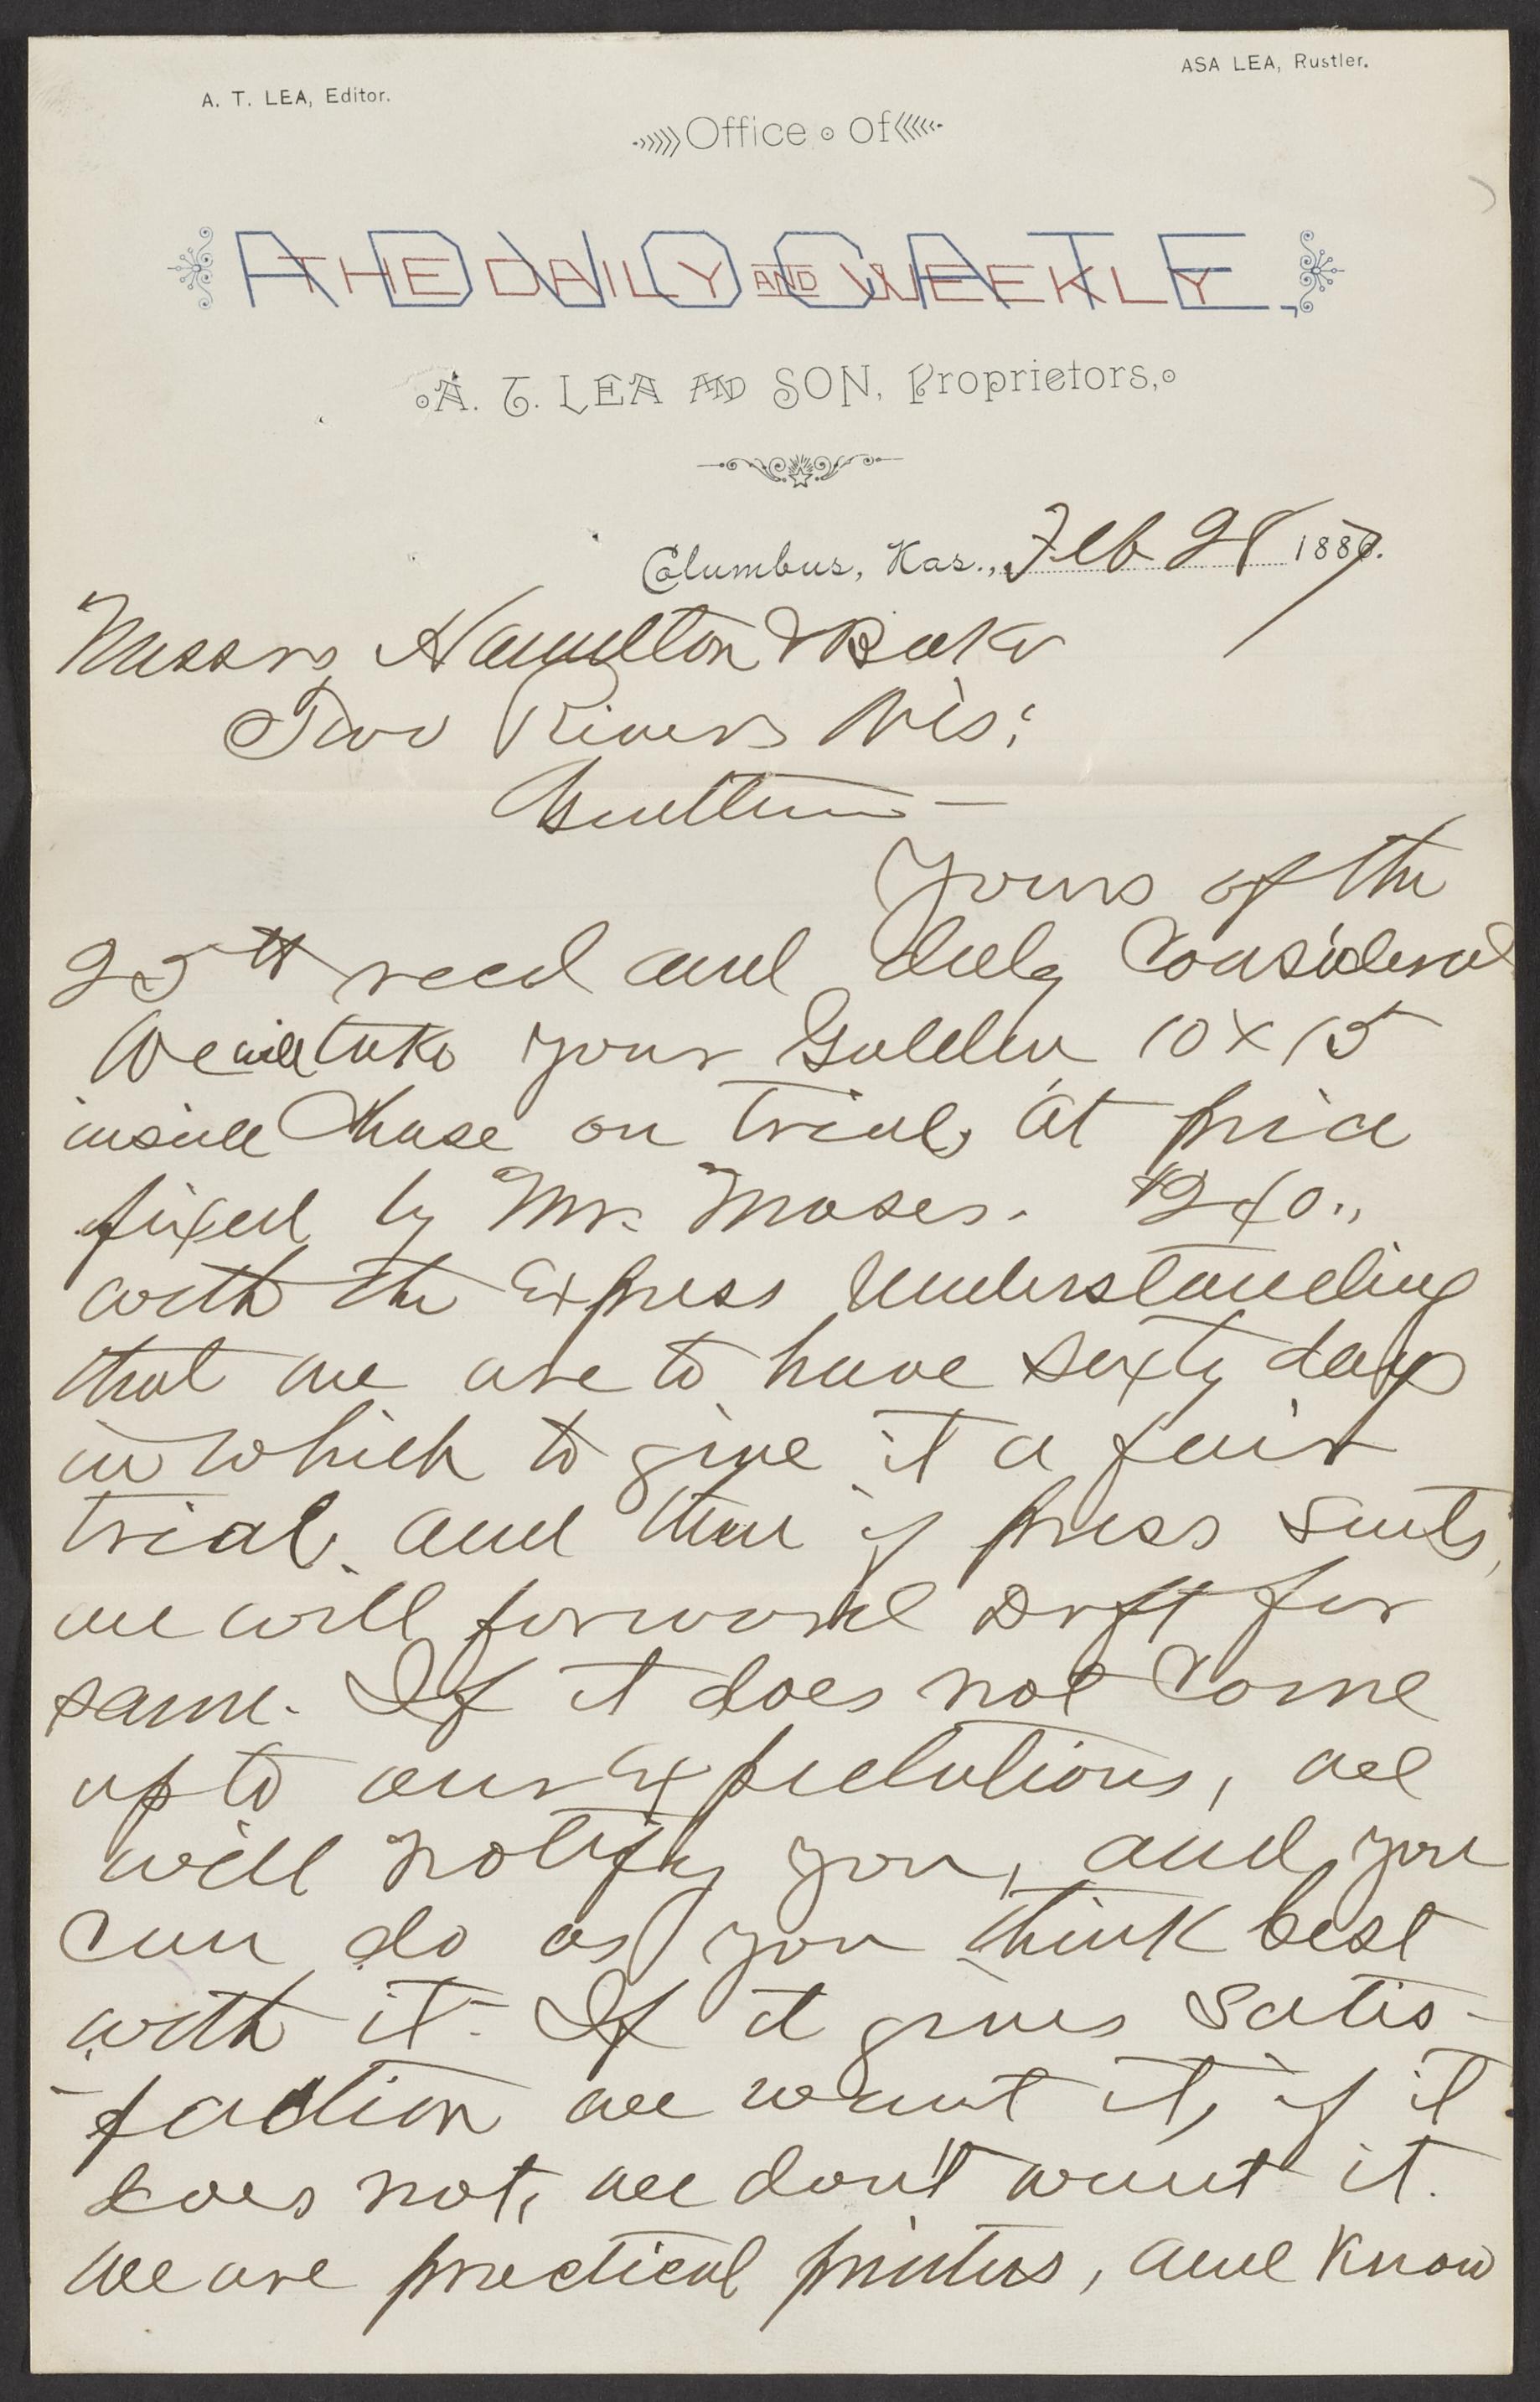 A. T. LEA, Editor.
ASA LEA, Rustler.
Office of
THE DAILY AND WEEKLY
ADVOCATE,
A. T. LEA AND SON, Proprietors,
Columbus, Kas., Feb 28 1887.
Messrs Hamilton & Baker
Two Rivers Wis:
Gentlemen —
Yours of the
25th recd and duly Considered
We will take your Golden 10 x 15
inside Chase on trial, at price
fixed by Mr. Moses. $240.,
with the express understanding
that we are to have sixty days
in which to give it a fair
trial, and then if press suits,
we will forward Drft for
same. If it does not Come
up to our expectations, we
will notify you, and you
Can do as you think best
with it. If it gives Satis-
-faction we want it, if it
does not, we don't want it.
We are practical printers, and Know